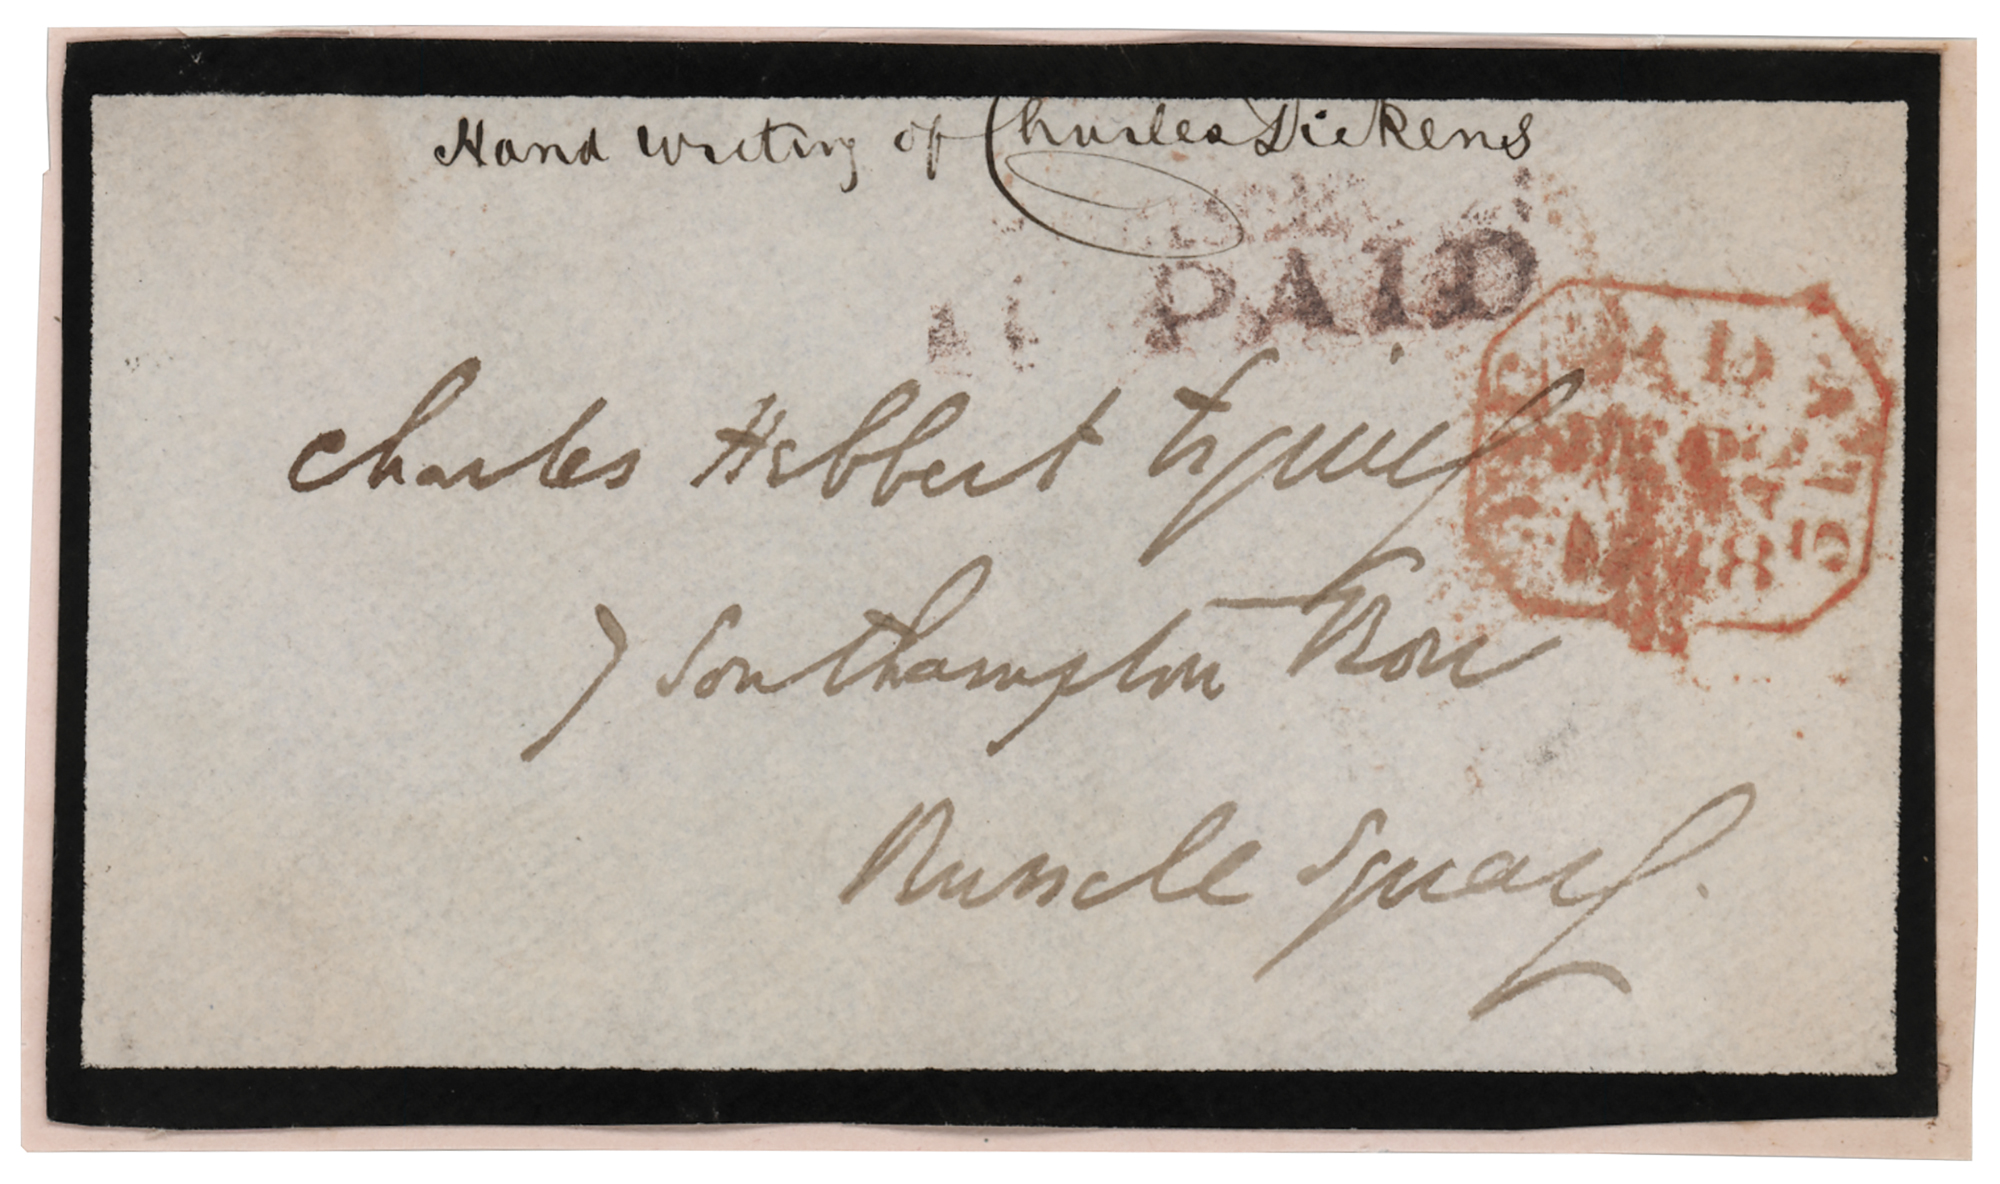 Hand writing of Charles Dickens
PAID
PAID
Charles Hebbert Esquire
7 Southampton Row
Russell Square.